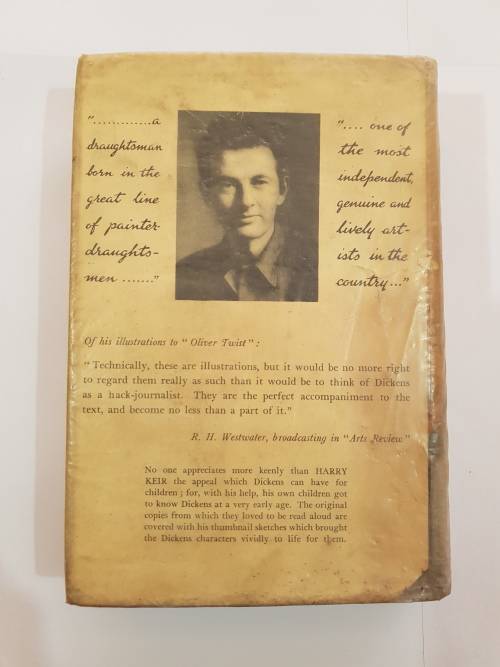 "............a
draughtsman
born in the
great line
of painter-
draughts-
men ......."
".... one of
the most
independent,
genuine and
lively art-
ists in the
country..."
Of his illustrations to "Oliver Twist":
"Technically, these are illustrations, but it would be no more right
to regard them really as such than it would be to think of Dickens
as a hack-journalist. They are the perfect accompaniment to the
text, and become no less than a part of it."
R. H. Westwater, broadcasting in "Arts Review"
No one appreciates more keenly than HARRY
KEIR the appeal which Dickens can have for
children; for, with his help, his own children got
to know Dickens at a very early age. The original
copies from which they loved to be read aloud are
covered with his thumbnail sketches which brought
the Dickens characters vividly to life for them.